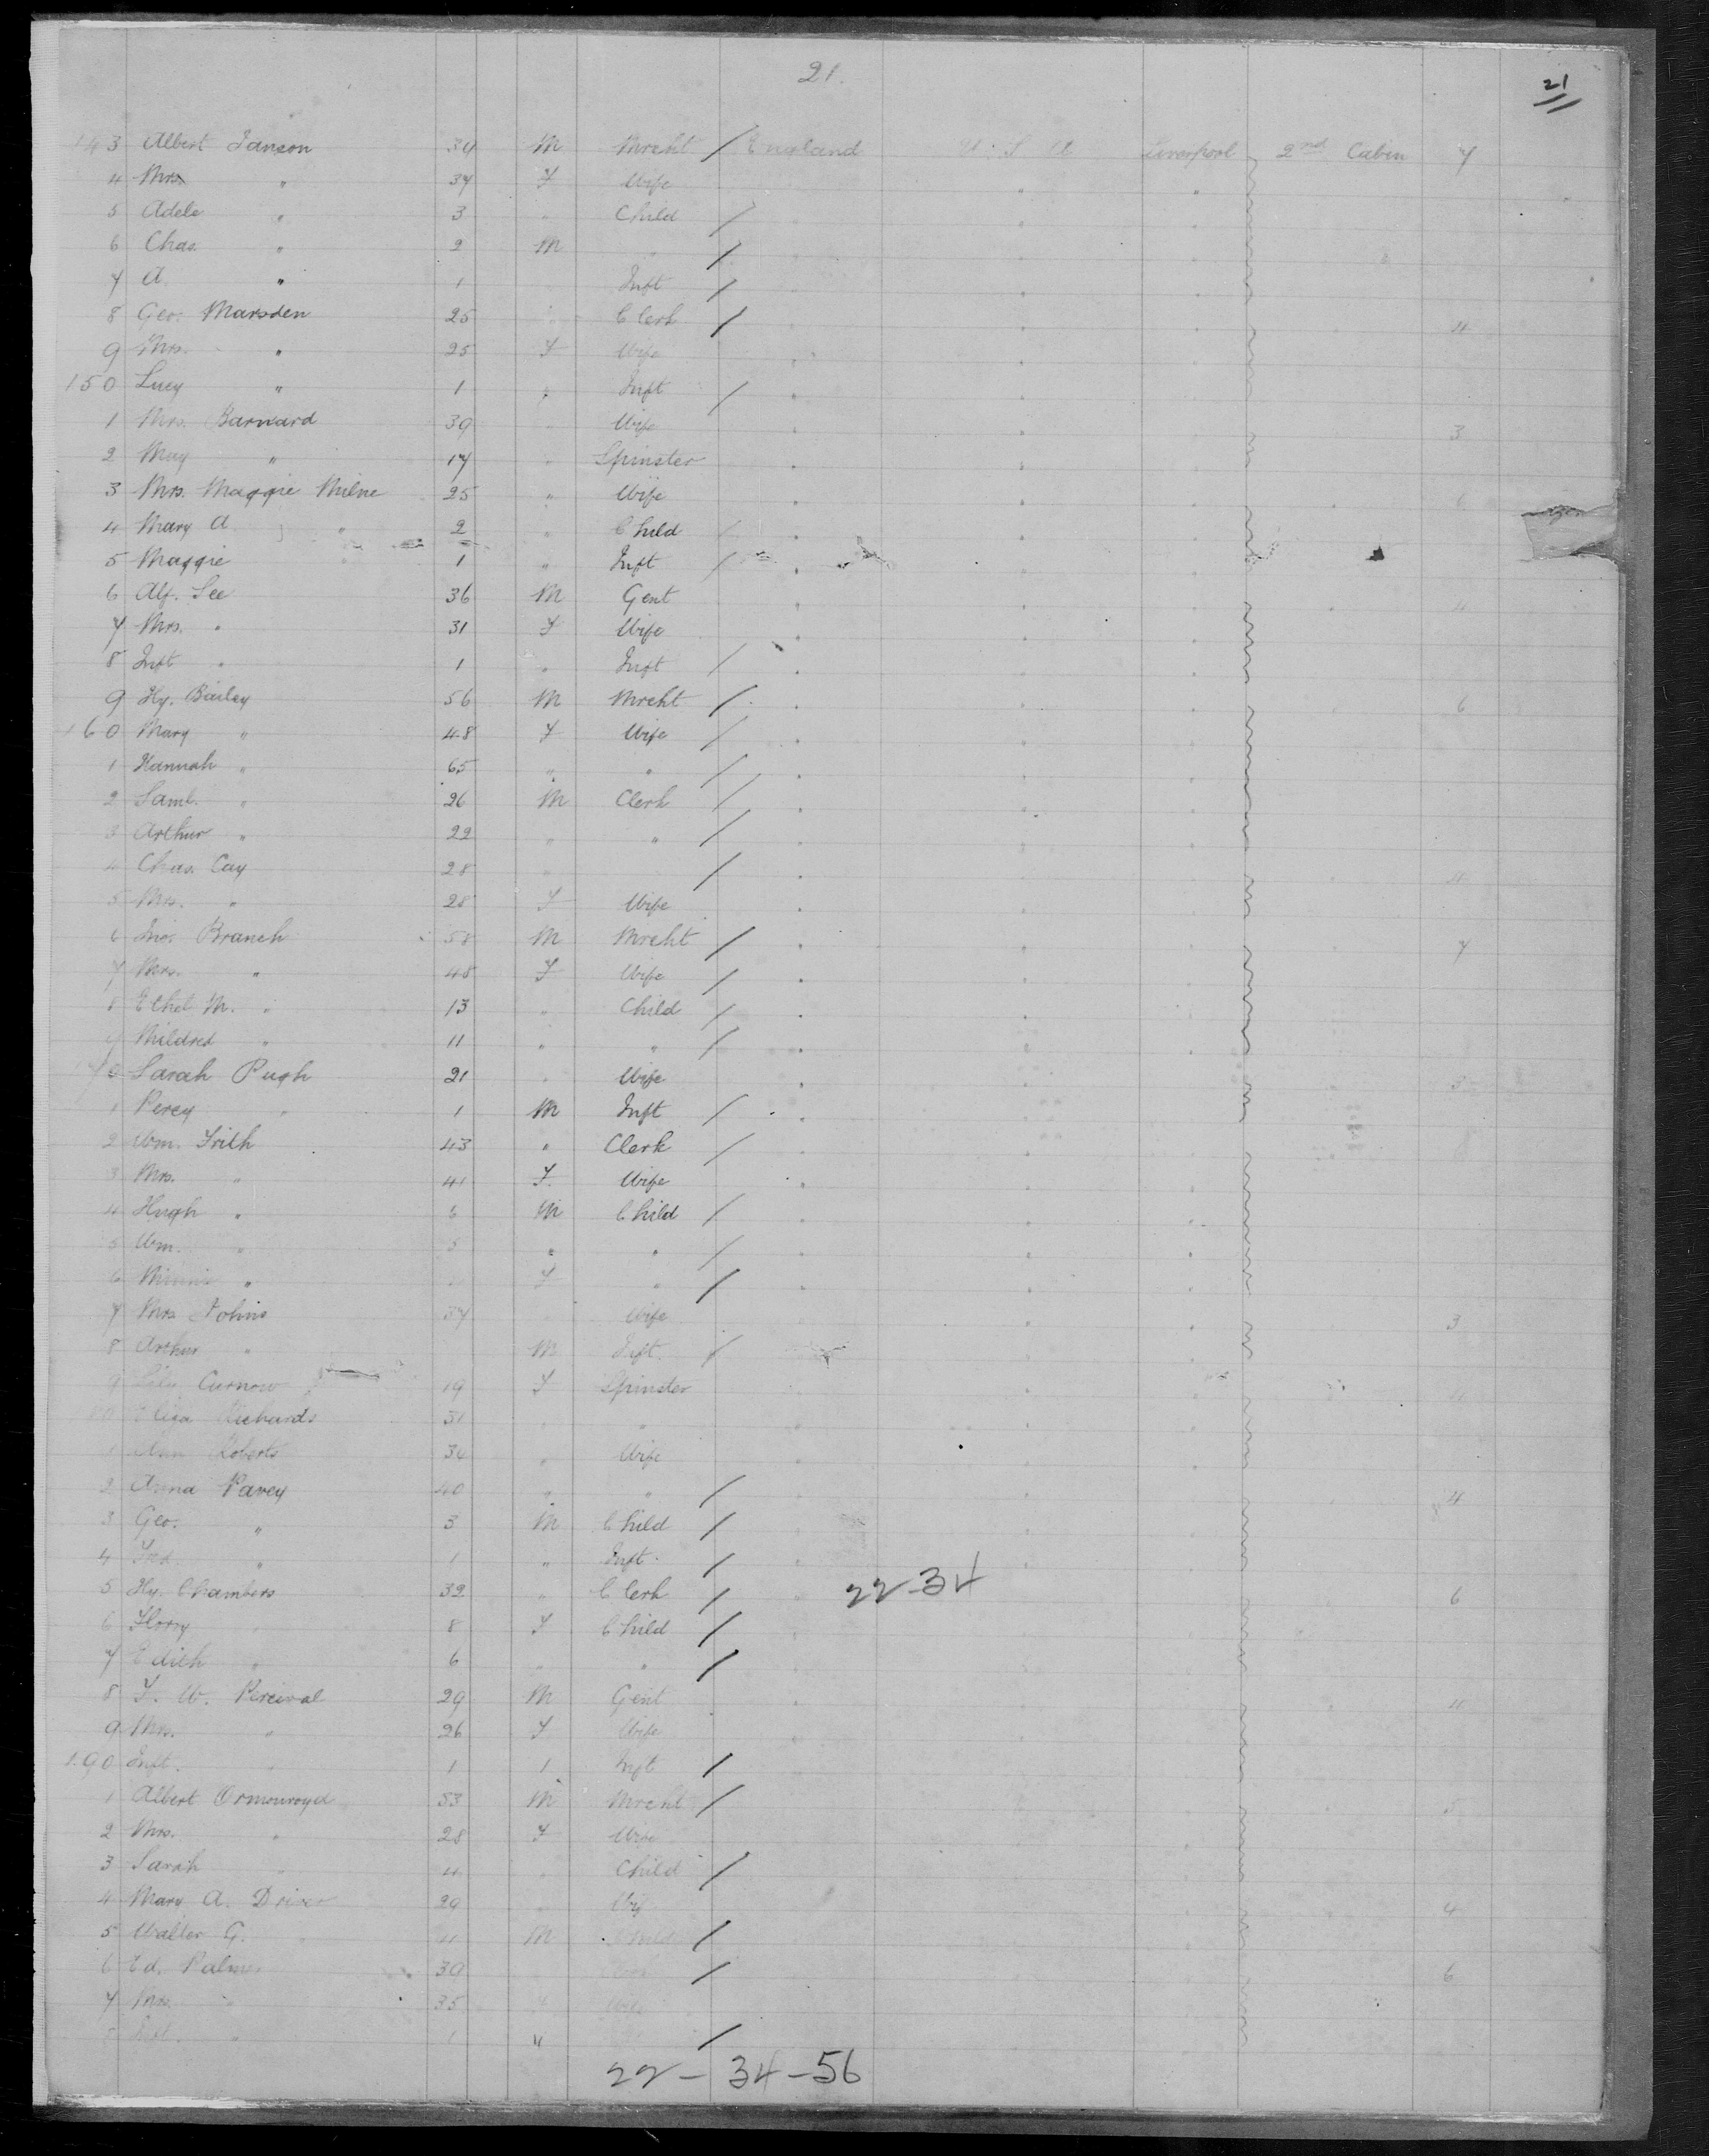 21.
21
143 Albert Janson 34 M Mrcht / England U. S. A Liverpool 2nd Cabin 7
4 Mrs " 34 F Wife " "
5 Adele " 3 " Child /
6 Chas. " 2 M /
7 A. " 1 Inft /
8 Geo. Marsden 25 " Clerk / 4
9 Mrs. " 25 F Wife
150 Lucy " 1 " Inft /
1 Mrs. Barnard 39 " Wife 3
2 May " 17 " Spinster
3 Mrs. Maggie Milne 25 " Wife 6
4 Mary A. " 2 " Child /
5 Maggie " 1 " Inft /
6 Alf. Lee 36 M Gent 4
7 Mrs. " 31 F Wife
8 Inft " 1 " Inft /
9 Hy. Bailey 56 M Mrcht / 6
160 Mary " 48 F Wife /
1 Hannah " 65 " " /
2 Saml. " 26 M Clerk /
3 Arthur " 22 " " /
4 Chas. Cay 28 " / 4
5 Mrs. " 28 F Wife
6 Jno. Branch 58 M Mrcht / 7
7 Mrs. " 48 F Wife /
8 Ethel M. " 13 " Child /
9 Mildred " 11 " " /
170 Sarah Pugh 21 " Wife 3
1 Percy " 1 M Inft /
2 Wm. Frith 43 " Clerk /
3 Mrs. " 41 F. Wife
4 Hugh " 6 M Child /
5 Wm. " 5 " " /
6 Minnie " F " /
7 Mrs Johns 37 " Wife 3
8 Arthur " M Inft. /
9 Lily Curnow 19 F Spinster 4
180 Eliza Richards 31 " "
1 Ann Roberts 34 " Wife
2 Anna Pavey 40 " " / 4
3 Geo. " 3 M Child /
4 Fred. " 1 " Inft. /
5 Hy. Chambers 32 " Clerk / 22-34 6
6 Florry " 8 F Child /
7 Edith " 6 " " /
8 F. W. Percival 29 M Gent 4
9 Mrs. " 26 F Wife
190 Inft. " 1 1 Inft /
1 Albert Ormonroyd 53 M Mrcht / 5
2 Mrs. " 28 F Wife
3 Sarah " 4 " Child /
4 Mary A. Driver 29 " Wife 4
5 Walter G. " 4 M Child /
6 Ed. Palmer 39 / 6
7 Mrs. " 35 F Wife
8 Inft. " 1 " /
22 - 34 - 56